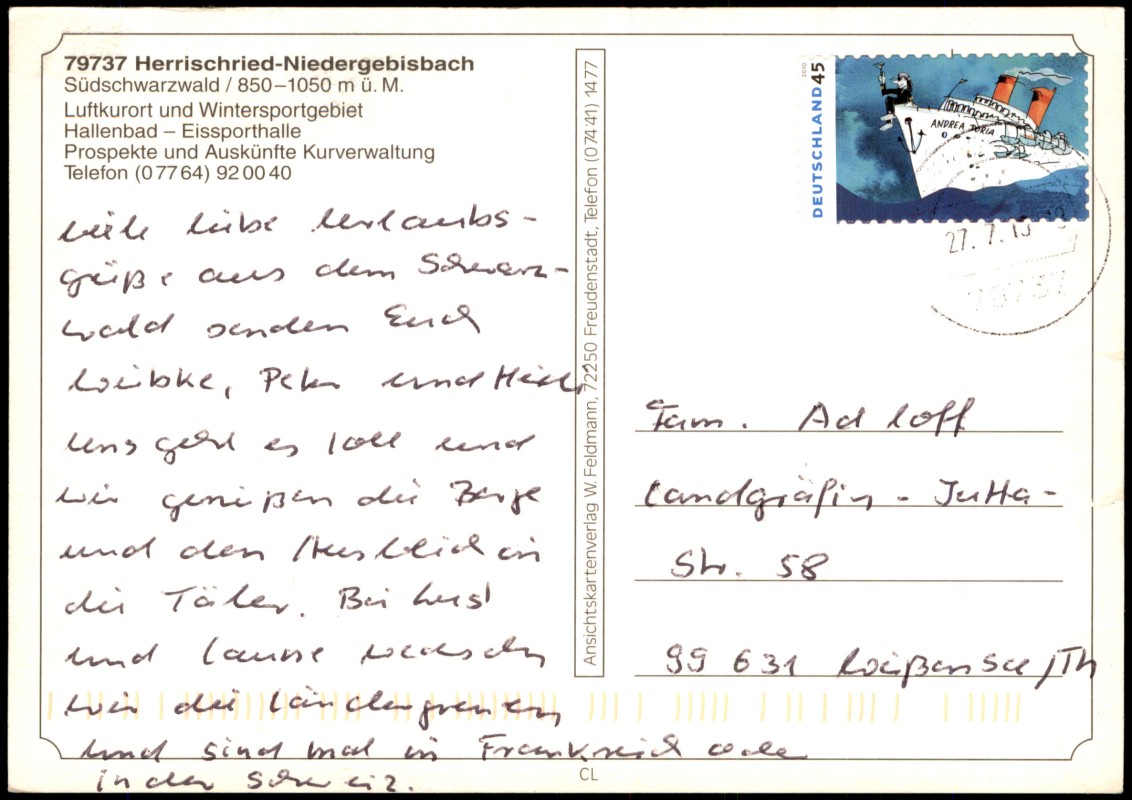 79737 Herrischried-Niedergebisbach
Südschwarzwald / 850–1050 m ü. M.
Luftkurort und Wintersportgebiet
Hallenbad – Eissporthalle
Prospekte und Auskünfte Kurverwaltung
Telefon (0 77 64) 92 00 40
viele liebe Urlaubs-
grüße aus dem Schwarz-
wald senden Euch
Wiebke, Peter und
Uns geht es toll und
wir genießen die Berge
und den Ausblick in
die Täler. Bei Lust
und Laune wechseln
wir die Ländergrenzen
und sind mal in Frankreich oder
in der Schweiz.
Ansichtskartenverlag W. Feldmann, 72250 Freudenstadt, Telefon (0 74 41) 14 77
CL
DEUTSCHLAND 45
2010
ANDREA DORIA
27. 7. 1
79737
Fam. Adloff
Landgräfin-Jutta-
Str. 58
99 631 Weißensee/Th